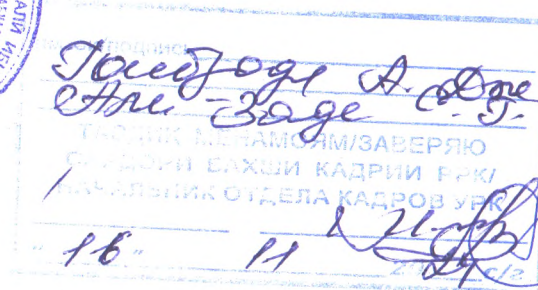 ИМЗО/ПОДПИСЬ
А. Дж.
Али-Заде С. Г.
ТАСДИК МЕНАМОЯМ/ЗАВЕРЯЮ
САРДОРИ БАХШИ КАДРИИ РРК/
НАЧАЛЬНИК ОТДЕЛА КАДРОВ УРК
" 16 " 11 24 с/г